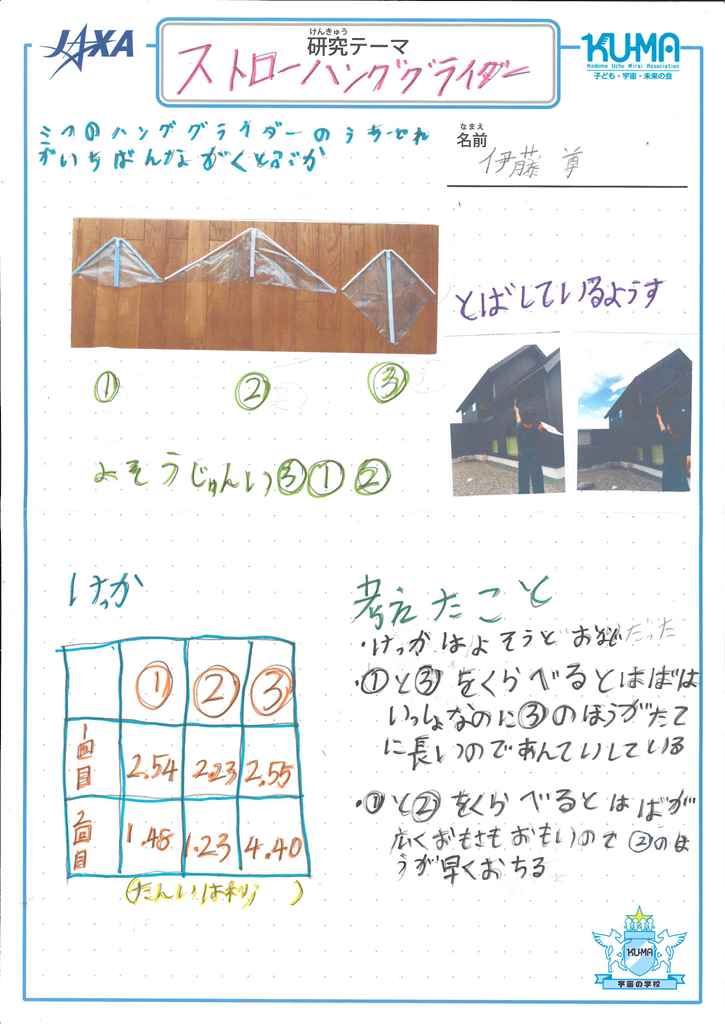 JAXA
けんきゅう
研究テーマ
ストローハンググライダー
KU-MA
Kodomo Uchu Mirai Association
子ども・宇宙・未来の会
三つのハンググライダーのうちどれ
がいちばんながくとぶか
なまえ
名前
伊藤 尊
とばしているようす
① ② ③
よそうじゅんい③①②
けっか
① ② ③
1回目 2.54 2.23 2.55
2回目 1.48 1.23 4.40
(たんいは秒)
考えたこと
・けっかはよそうとおなじだった
・①と③をくらべるとはばは
いっしょなのに③のほうがたて
に長いのであんていしている
・①と②をくらべるとはばが
広くおもさもおもいので②のほ
うが早くおちる
KU-MA
宇宙の学校